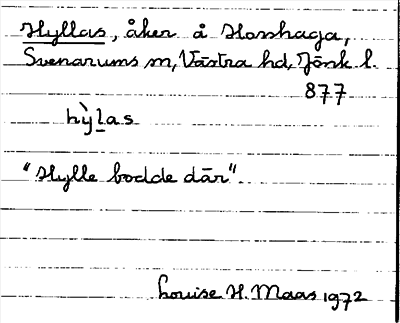 Hyllas, åker å Hosshaga,
Svenarums sn, Västra hd, Jönk l.
877
hỳl̲as
"Hylle bodde där".
Louise H. Maas 1972